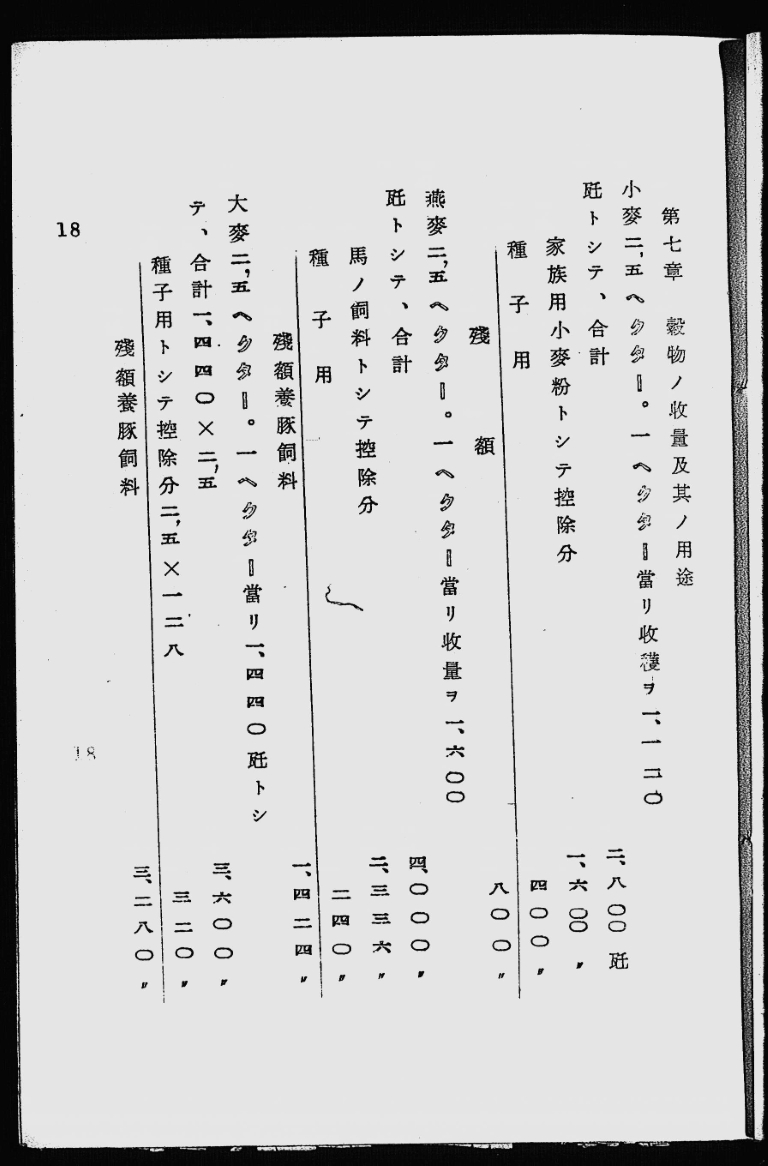 第七章　穀物ノ收量及其ノ用途
小麥二,五ヘクター。一ヘクター當リ收穫ヲ一、一二〇
瓩トシテ、合計　二、八〇〇瓩
家族用小麥粉トシテ控除分　一、六〇〇〃
種子用　四〇〇〃
殘額　八〇〇〃
燕麥二,五ヘクター。一ヘクター當リ收量ヲ一、六〇〇
瓩トシテ、合計　四、〇〇〇〃
馬ノ飼料トシテ控除分　二、三三六〃
種子用　二四〇〃
殘額養豚飼料　一、四二四〃
大麥二,五ヘクター。一ヘクター當リ一、四四〇瓩トシ
テ、合計一、四四〇×二,五　三、六〇〇〃
種子用トシテ控除分二,五×一二八　三二〇〃
殘額養豚飼料　三、二八〇〃
18
18